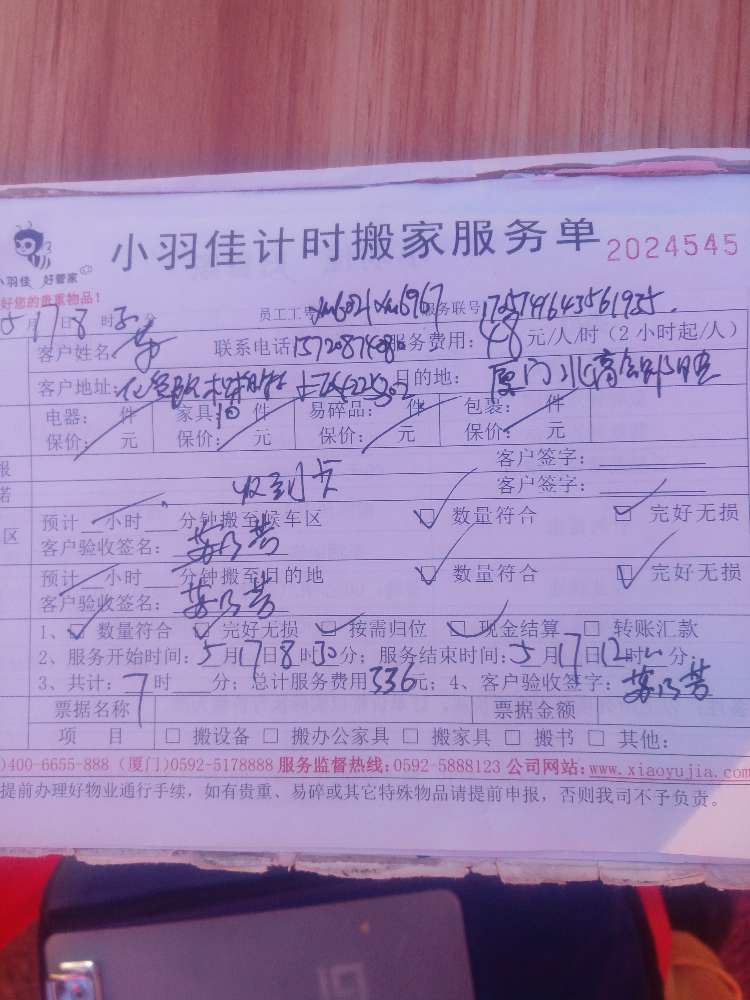 小羽佳计时搬家服务单 2024545
小羽佳 好管家
好您的贵重物品!
5月17日8时30分 员工工号 xm6021xm6967 服务联号
客户姓名: 联系电话: 服务费用: 48 元/人/时(2小时起/人)
客户地址: 目的地: 厦门
电器: 件 家具: 10 件 易碎品: 件 包裹: 件
保价: 元 保价: 元 保价: 元 保价: 元
报 客户签字:
诺 收到卡 客户签字:
区 预计 小时 分钟搬至候车区 ☑ 数量符合 ☑ 完好无损
客户验收签名:
预计 小时 分钟搬至目的地 ☑ 数量符合 ☑ 完好无损
客户验收签名:
1、☑ 数量符合 ☑ 完好无损 ☑ 按需归位 ☑ 现金结算 □ 转账汇款
2、服务开始时间: 5月17日8时30分; 服务结束时间: 5月17日12时 分;
3、共计: 7时 分; 总计服务费用 336元; 4、客户验收签字:
票据名称 票据金额
项 目 □ 搬设备 □ 搬办公家具 □ 搬家具 □ 搬书 □ 其他:
)400-6655-888 (厦门)0592-5178888 服务监督热线:0592-5888123 公司网站:www.xiaoyujia.com
提前办理好物业通行手续,如有贵重、易碎或其它特殊物品请提前申报,否则我司不予负责。